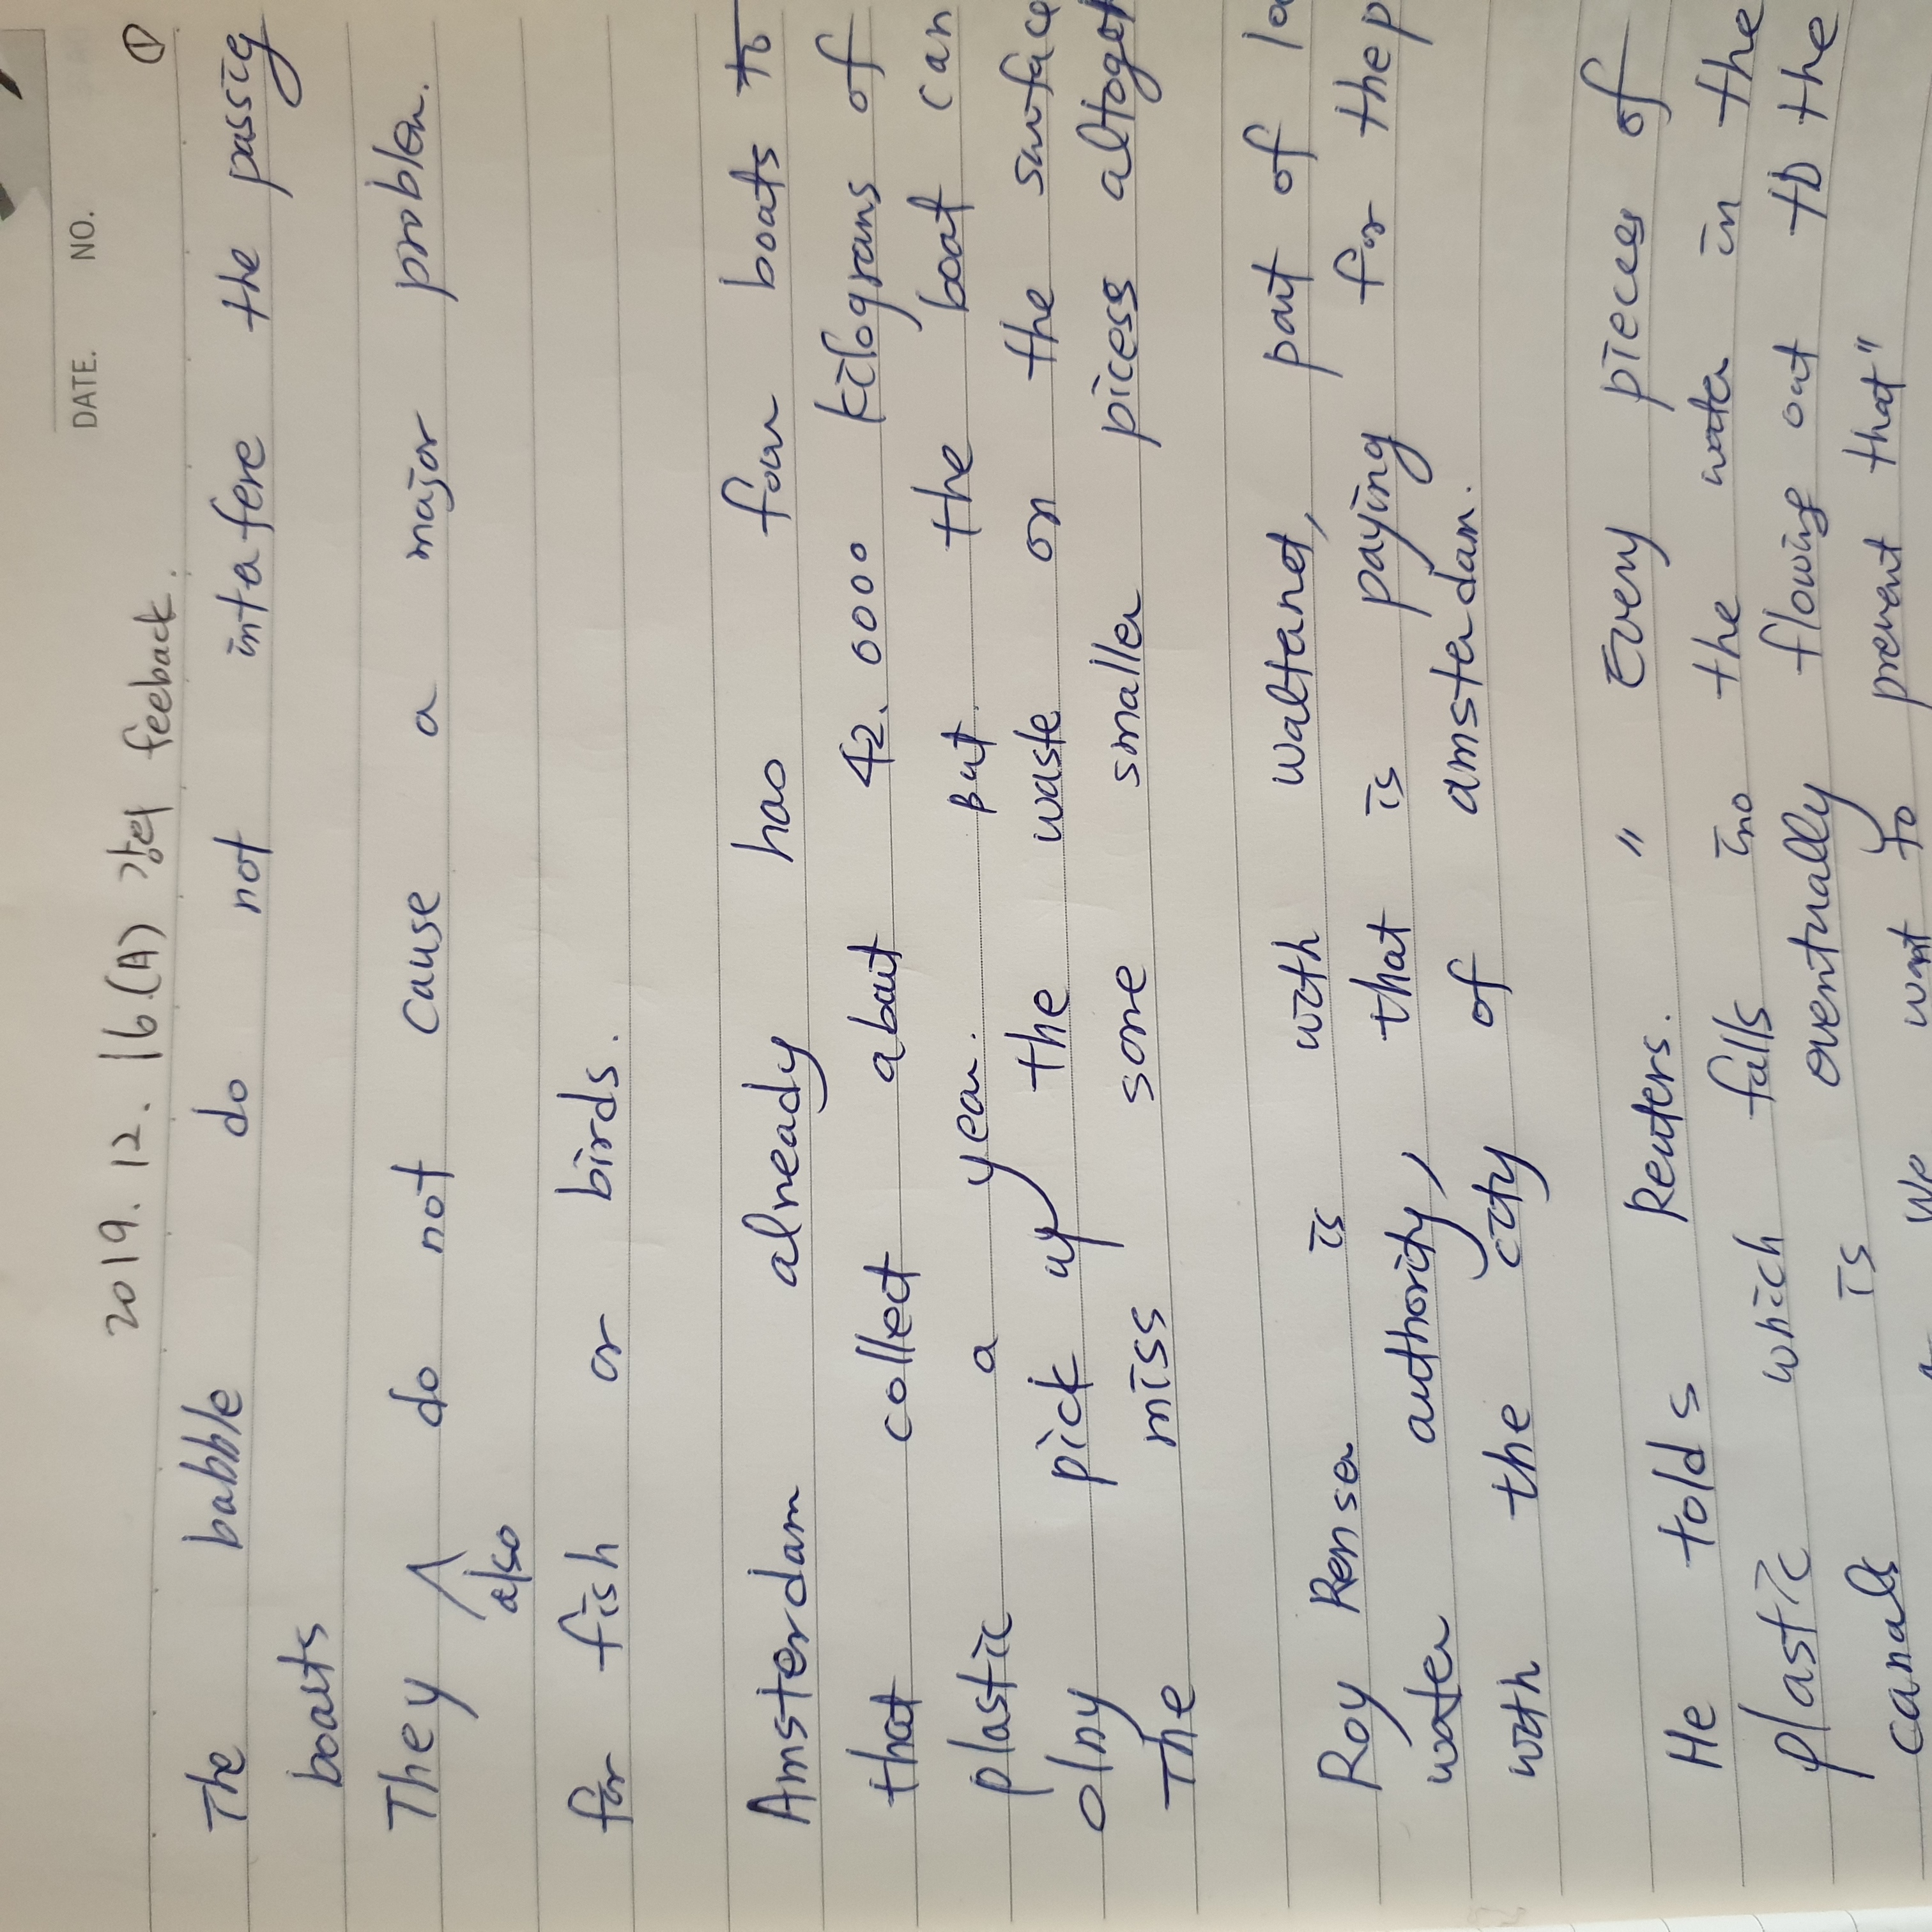 DATE. NO.
2019. 12. 16.(A) 강의 feeback. ①
The babble do not intafere the passig
boats
They do not cause a major problem.
also
for fish or birds.
Amsterdam already has four boats to
that collect about 42.0000 kilograms of
plastic a year. But the boat can
olny pick up the waste on the surface
The miss some smaller picess altoget
Roy Renser is with waltanet, part of lo
water authority, that is paying for the p
with the city of amsterdam.
He tolds Reuters. " Every pieces of
plastic which falls ino the water in the
canals is oventually flowing out to the
We want to prevent that"